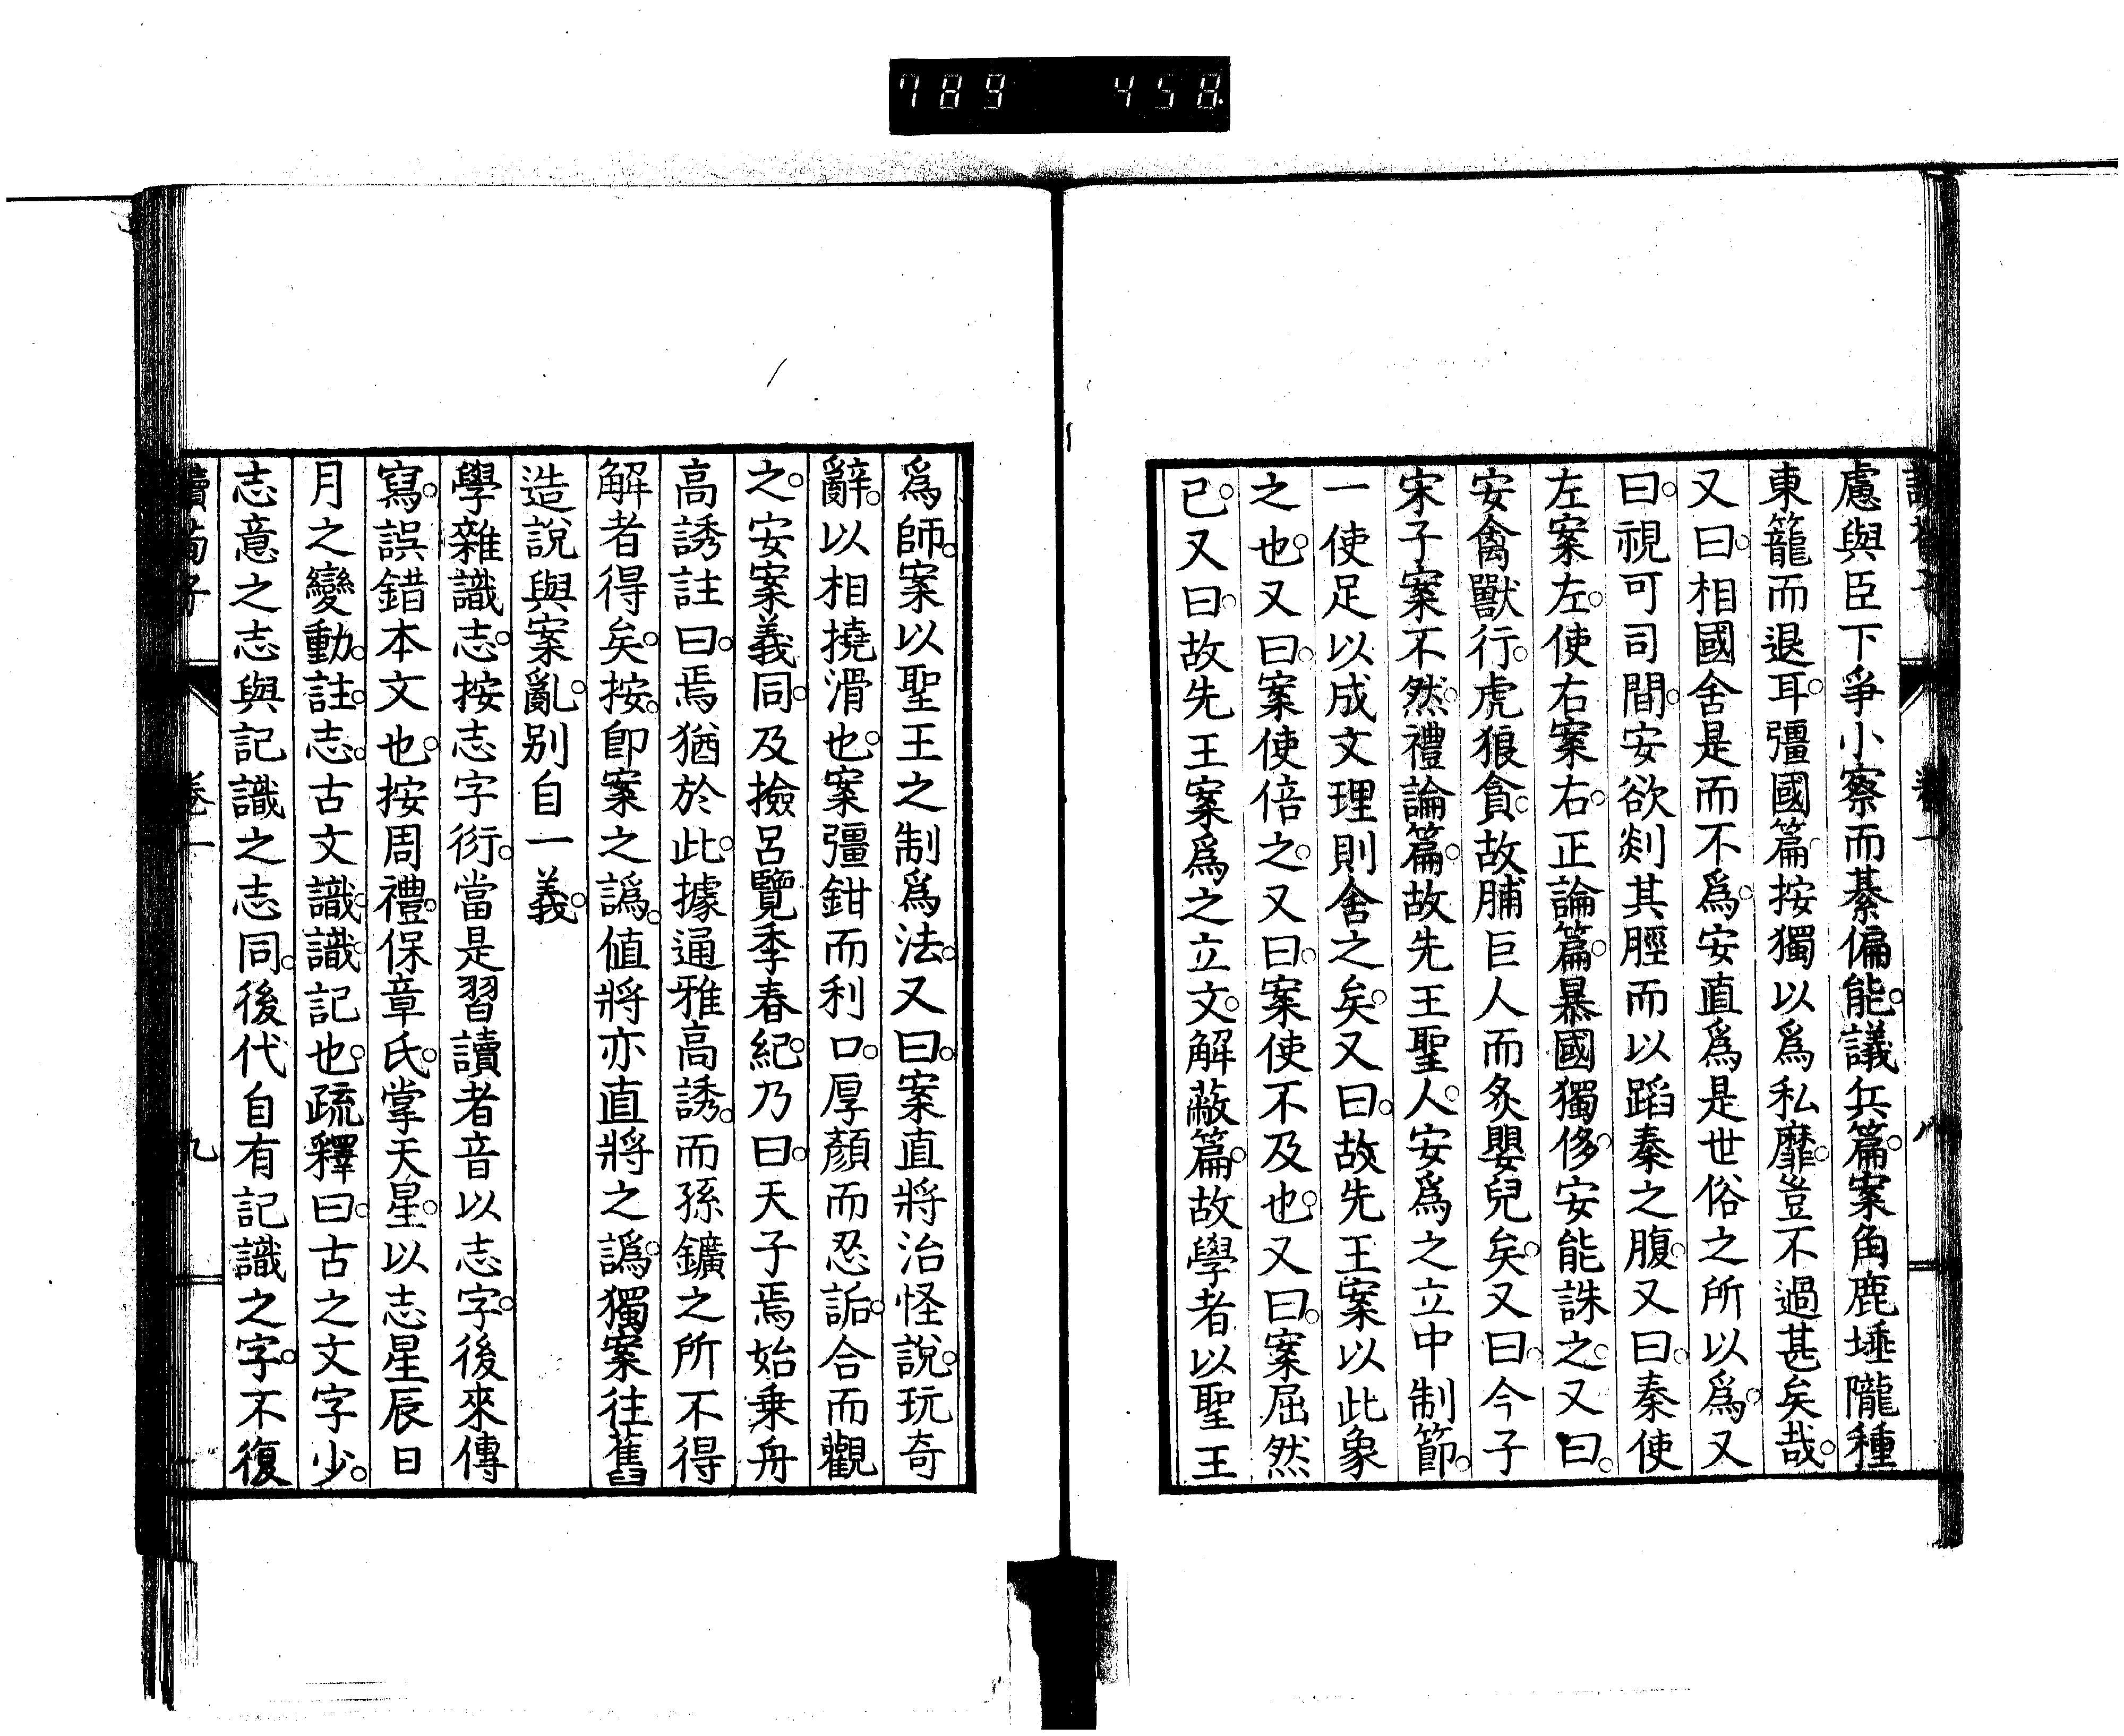 789 458
慮與臣下爭小察而綦偏能。議兵篇。案角鹿埵隴種
東籠而退耳。彊國篇。按獨以爲私靡。豈不過甚矣哉。
又曰。相國舍是而不爲。安直爲是世俗之所以爲。又
曰。視可司間。安欲剡其脛而以蹈秦之腹。又曰。秦使
左案左。使右案右。正論篇。暴國獨侈。安能誅之。又曰。
安禽獸行。虎狼貪。故脯巨人而炙嬰兒矣。又曰。今子
宋子案不然。禮論篇。故先王聖人。安爲之立中制節。
一使足以成文理則舍之矣。又曰。故先王案以此象
之也。又曰。案使倍之。又曰。案使不及也。又曰。案屈然
已。又曰。故先王案爲之立文。解蔽篇。故學者以聖王
爲師。案以聖王之制爲法。又曰。案直將治怪說。玩奇
辭。以相撓滑也。案彊鉗而利口。厚顏而忍詬。合而觀
之。安案義同。及撿呂覽季春紀。乃曰。天子焉始乗舟
高誘註曰。焉猶於此。據通雅高誘。而孫鑛之所不得
解者得矣。按。卽案之譌。值將亦直將之譌。獨案往舊
造說與案亂。別自一義。
學雜識志。按志字衍。當是習讀者音以志字。後來傳
寫。誤錯本文也。按周禮。保章氏。掌天星。以志星辰日
月之變動。註。志。古文識。識。記也。疏釋曰。古之文字少。
志意之志與記識之志同。後代自有記識之字。不復
讀荀子 卷一 九